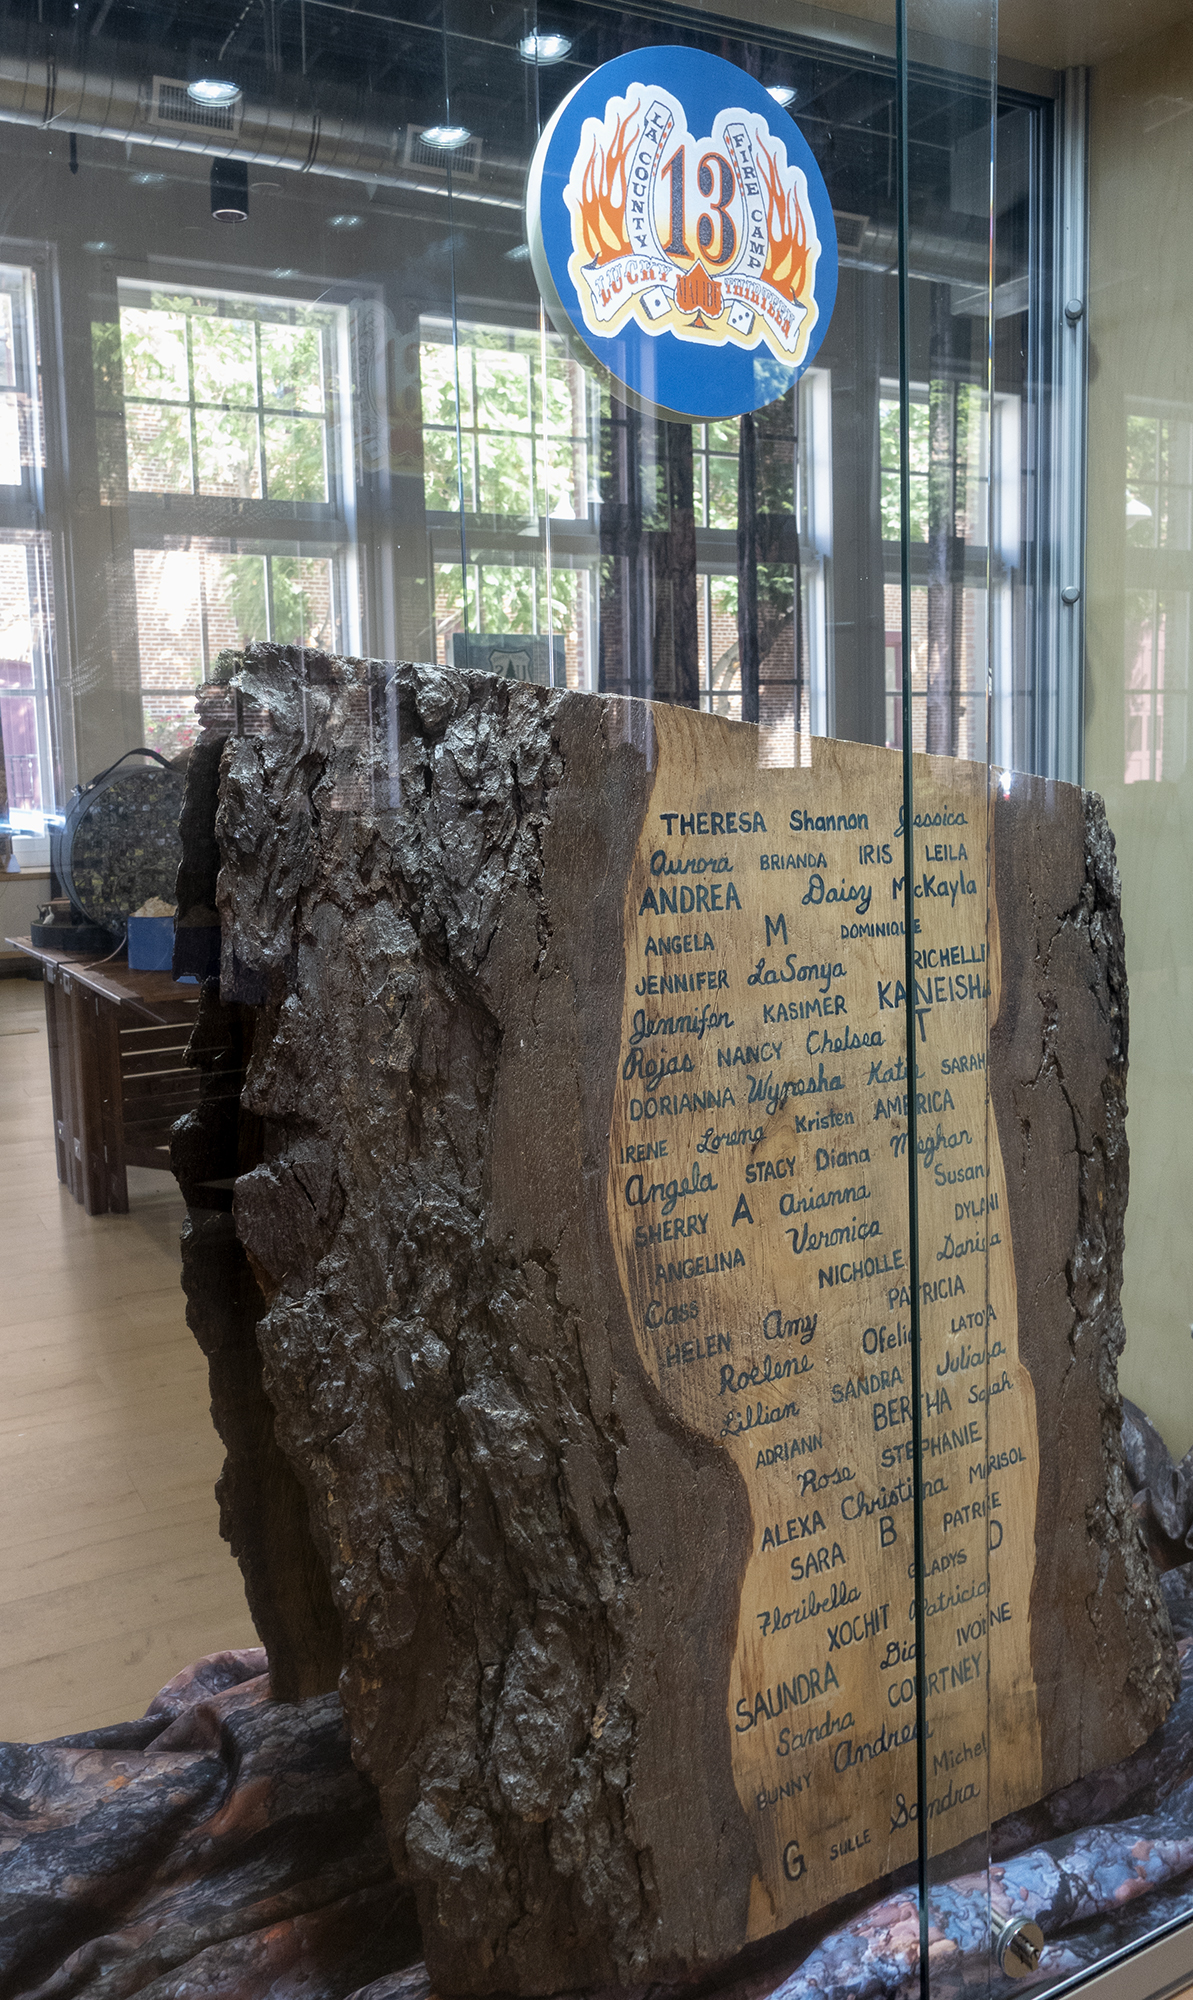 LA COUNTY
13
FIRE CAMP
LUCKY MALIBU THIRTEEN
US
THERESA Shannon Jessica
Aurora BRIANDA IRIS LEILA
ANDREA Daisy McKayla
ANGELA M DOMINIQUE
JENNIFER LaSonya RICHELLE
Jennifer KASIMER KANEISHA
Rojas NANCY Chelsea T
DORIANNA Wynesha Katie SARAH
IRENE Lorena Kristen AMERICA
Angela STACY Diana Meghan
SHERRY A Arianna Susan
ANGELINA Veronica DYLANI
Cass NICHOLLE Daniela
HELEN Amy PATRICIA
Roelene Ofelia LATOYA
Lillian SANDRA Juliana
ADRIANN BERTHA Sarah
Rose STEPHANIE
ALEXA Christina MARISOL
SARA B PATRICE
Floribella GLADYS D
XOCHIT Patricia
SAUNDRA IVONNE
Sandra COURTNEY
BUNNY Andrea Michel
G SULLE Sandra